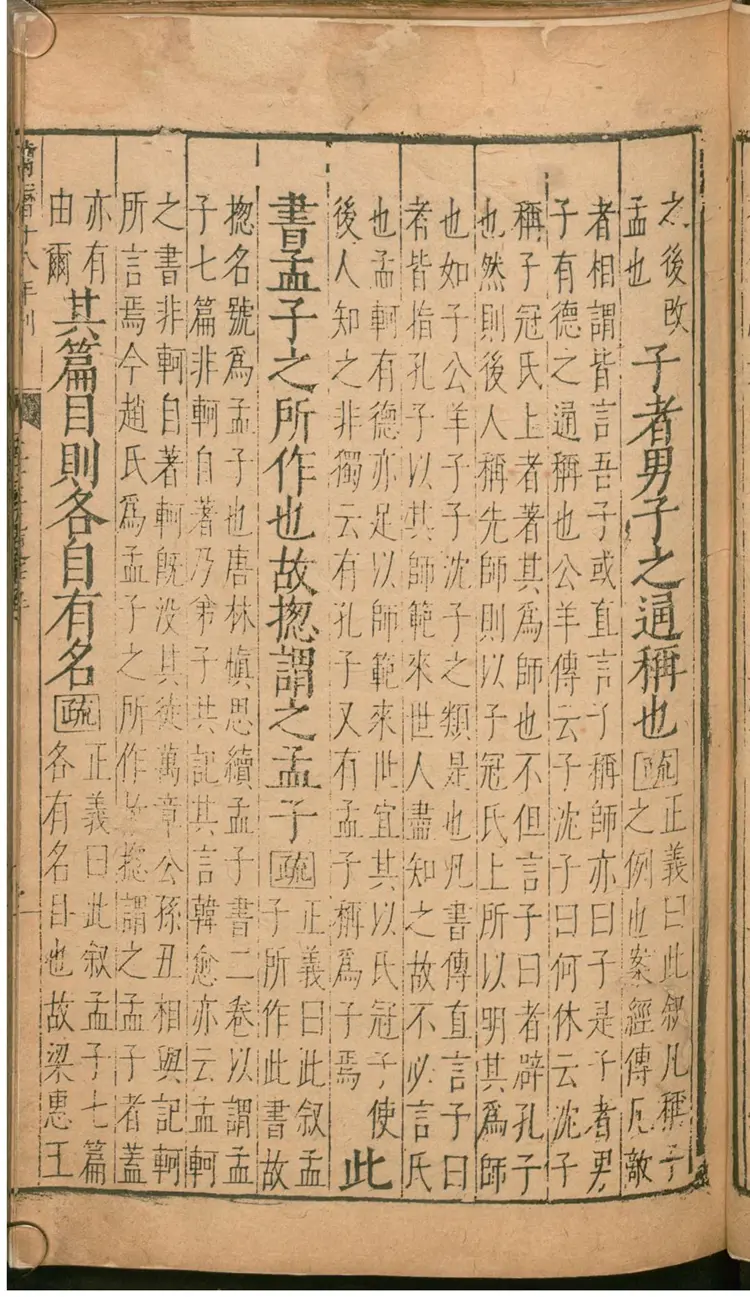 之後改
孟也
子者男子之通稱也疏
正義曰此敘凡稱子
之例也案經傳凡敵
者相謂皆言吾子或直言子稱師亦曰子是子者男
子有德之通稱也公羊傳云子沈子曰何休云沈子
稱子冠氏上者著其爲師也不但言子曰者辟孔子
也然則後人稱先師則以子冠氏上所以明其爲師
也如子公羊子子沈子之類是也凡書傳直言子曰
者皆指孔子以其師範來世人盡知之故不必言氏
也孟軻有德亦足以師範來世宜其以氏冠子使
後人知之非獨云有孔子又有孟子稱爲子焉
此
書孟子之所作也故揔謂之孟子疏
正義曰此叙孟
子所作此書故
揔名號爲孟子也唐林慎思續孟子書二卷以謂孟
子七篇非軻自著乃弟子共記其言韓愈亦云孟軻
之書非軻自著軻旣没其徒萬章公孫丑相與記軻
所言焉今趙氏爲孟子之所作故揔謂之孟子者蓋
亦有
由爾
其篇目則各自有名疏
正義曰此叙孟子七篇
各有名目也故梁惠王
十八年刊